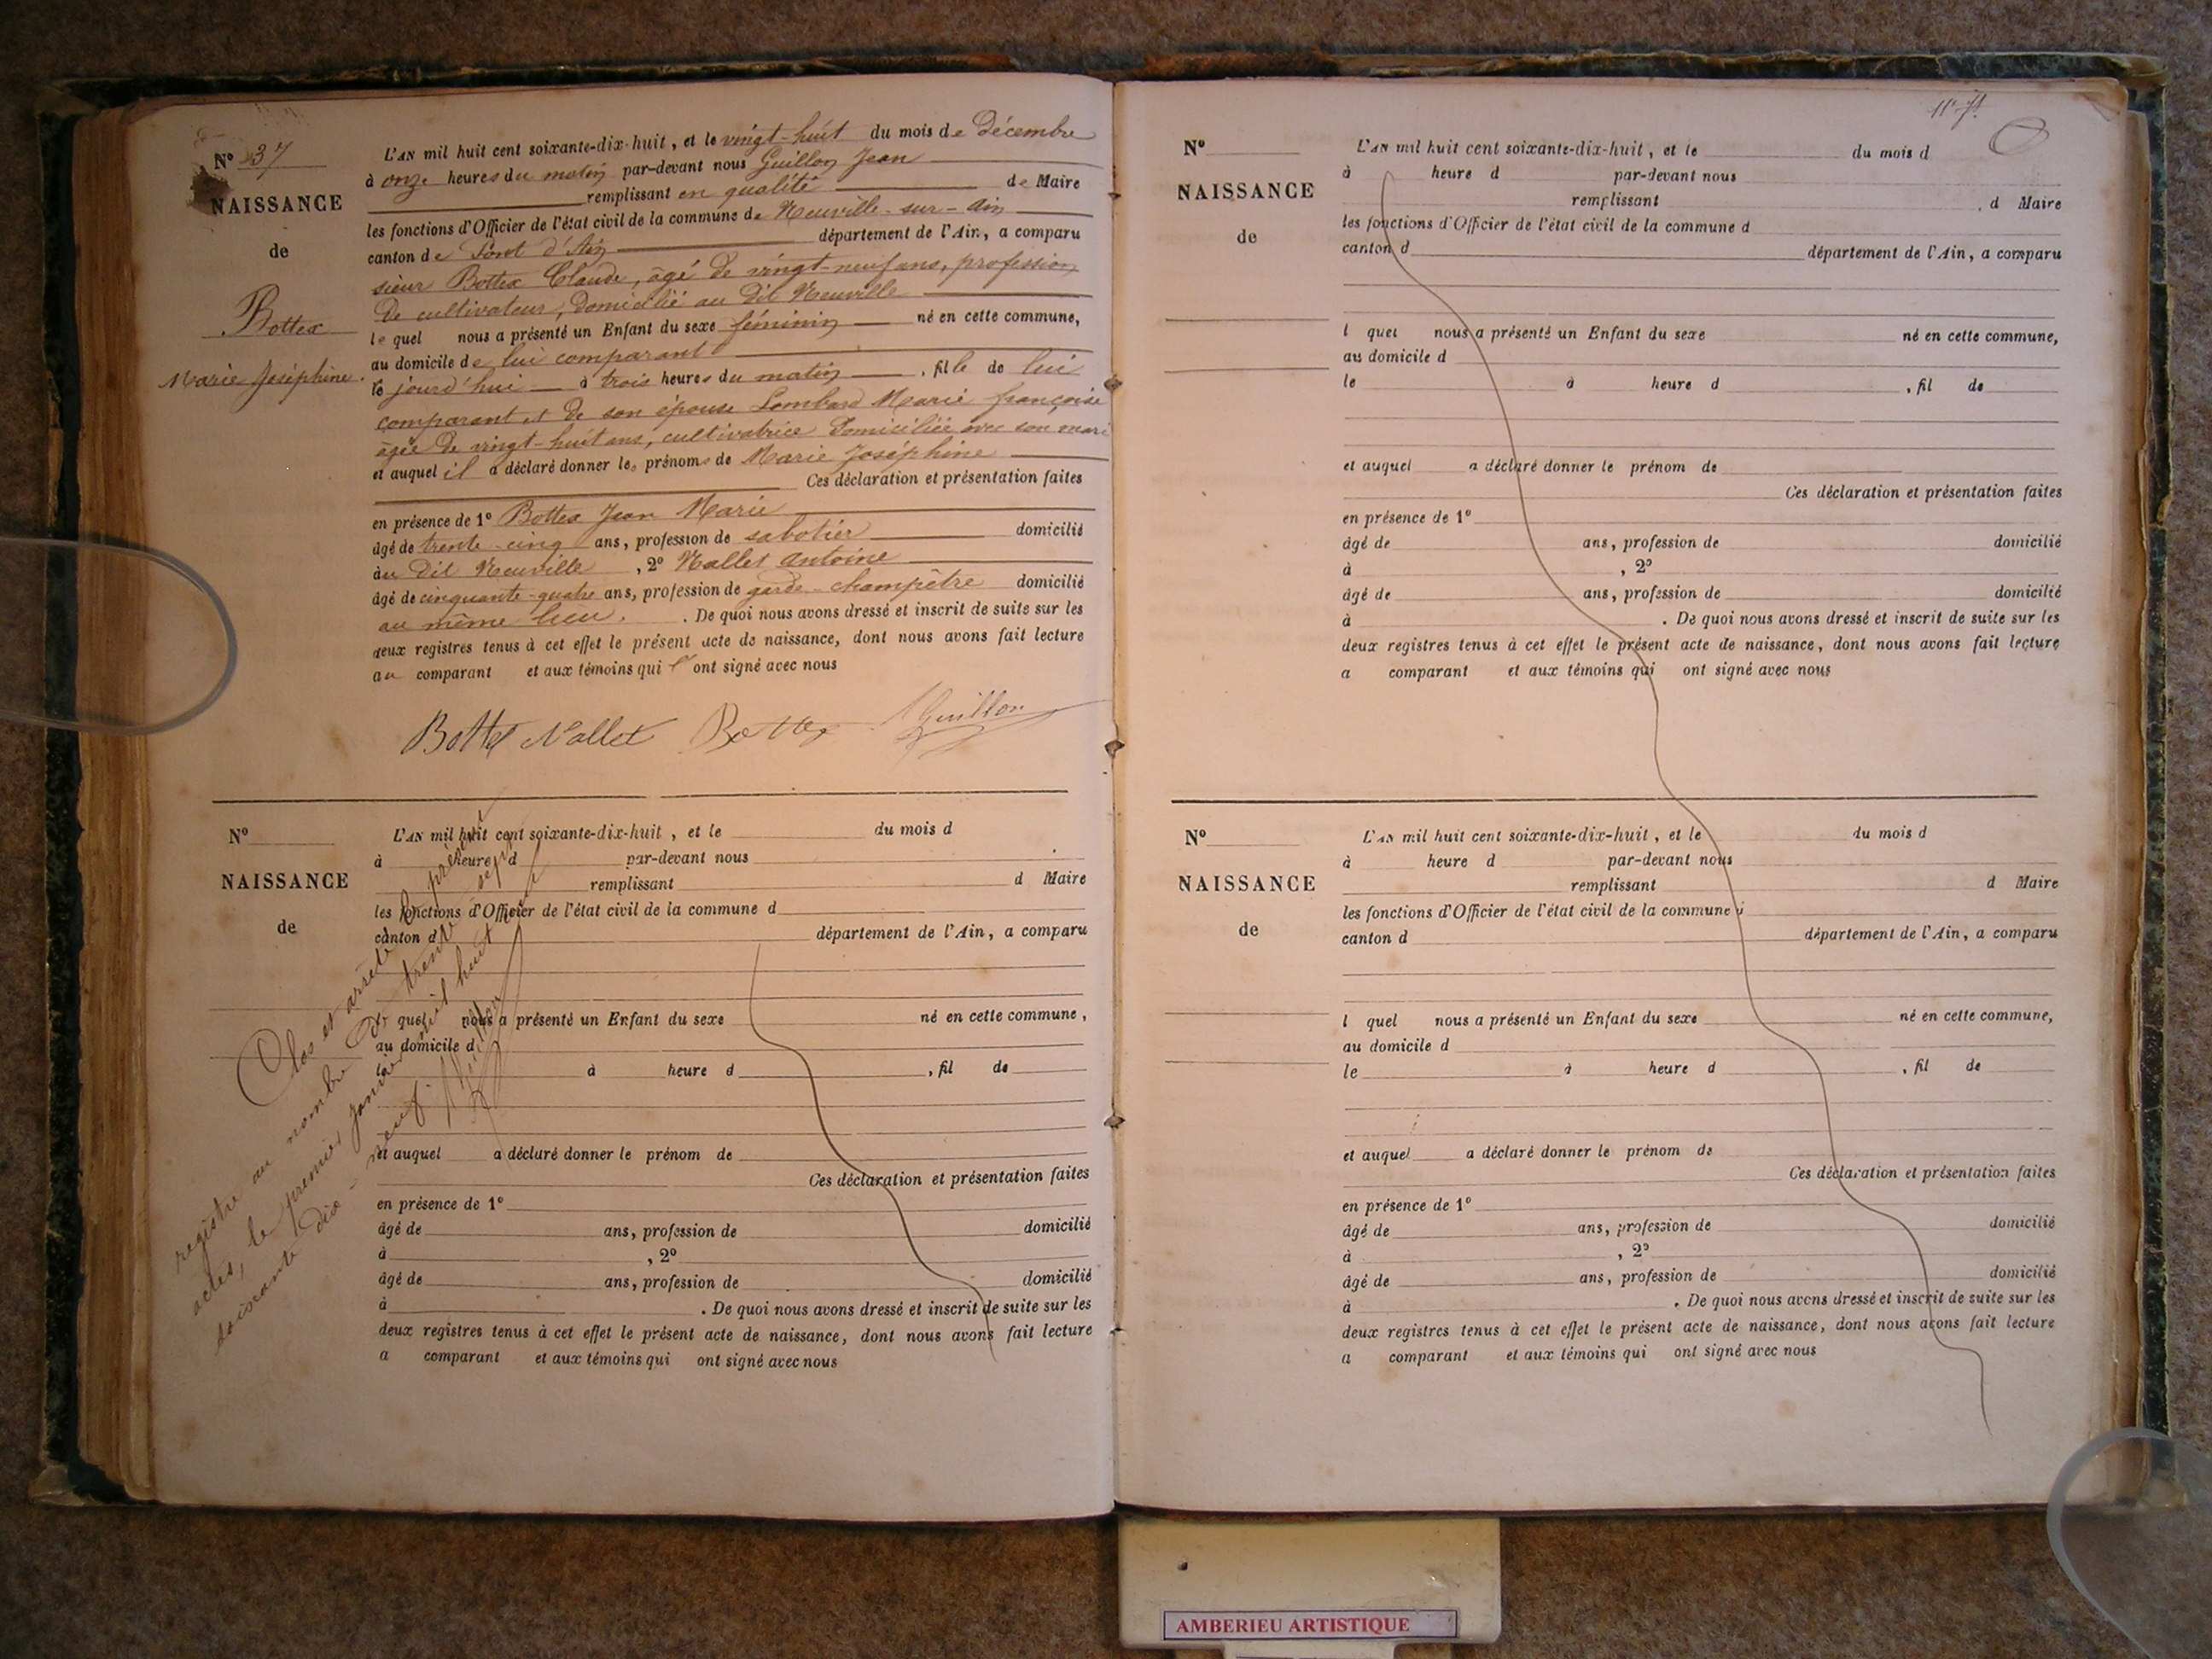 N° 37
NAISSANCE
de
Bottex
Marie Joséphine.
L'AN mil huit cent soixante-dix-huit, et le vingt-huit du mois de Décembre
à onze heures du matin par-devant nous Guillon Jean
remplissant en qualité de Maire
les fonctions d'Officier de l'état civil de la commune de Neuville-sur-Ain
canton de Pont d'Ain département de l'Ain, a comparu
sieur Bottex Claude, âgé de vingt-neuf ans, profession
de cultivateur, domicilié au dit Neuville
le quel nous a présenté un Enfant du sexe féminin né en cette commune,
au domicile de lui comparant
le jourd'hui à trois heures du matin, fille de lui
comparant et de son épouse Lombard Marie françoise
âgée de vingt-huit ans, cultivatrice domiciliée avec son mari
et auquel il a déclaré donner les prénoms de Marie Joséphine
Ces déclaration et présentation faites
en présence de 1° Bottex Jean Marie
âgé de trente-cinq ans, profession de sabotier domicilié
au dit Neuville, 2° Nallet Antoine
âgé de cinquante-quatre ans, profession de garde-champêtre domicilié
au même lieu. . De quoi nous avons dressé et inscrit de suite sur les
deux registres tenus à cet effet le présent acte de naissance, dont nous avons fait lecture
au comparant et aux témoins qui ont signé avec nous
Bottex Nallet Bottex Guillon
N°
NAISSANCE
de
L'AN mil huit cent soixante-dix-huit, et le du mois d
à heure d par-devant nous
remplissant d Maire
les fonctions d'Officier de l'état civil de la commune d
canton d département de l'Ain, a comparu
l quel nous a présenté un Enfant du sexe né en cette commune,
au domicile d
le à heure d , fil de
et auquel a déclaré donner le prénom de
Ces déclaration et présentation faites
en présence de 1°
âgé de ans, profession de domicilié
à , 2°
âgé de ans, profession de domicilié
à . De quoi nous avons dressé et inscrit de suite sur les
deux registres tenus à cet effet le présent acte de naissance, dont nous avons fait lecture
a comparant et aux témoins qui ont signé avec nous
Clos et arrêté le présent
registre au nombre de trente sept
actes, le premier janvier mil huit cent
soixante dix-neuf.
Guillon
117
N°
NAISSANCE
de
L'AN mil huit cent soixante-dix-huit, et le du mois d
à heure d par-devant nous
remplissant d Maire
les fonctions d'Officier de l'état civil de la commune d
canton d département de l'Ain, a comparu
l quel nous a présenté un Enfant du sexe né en cette commune,
au domicile d
le à heure d , fil de
et auquel a déclaré donner le prénom de
Ces déclaration et présentation faites
en présence de 1°
âgé de ans, profession de domicilié
à , 2°
âgé de ans, profession de domicilié
à . De quoi nous avons dressé et inscrit de suite sur les
deux registres tenus à cet effet le présent acte de naissance, dont nous avons fait lecture
a comparant et aux témoins qui ont signé avec nous
N°
NAISSANCE
de
L'AN mil huit cent soixante-dix-huit, et le du mois d
à heure d par-devant nous
remplissant d Maire
les fonctions d'Officier de l'état civil de la commune d
canton d département de l'Ain, a comparu
l quel nous a présenté un Enfant du sexe né en cette commune,
au domicile d
le à heure d , fil de
et auquel a déclaré donner le prénom de
Ces déclaration et présentation faites
en présence de 1°
âgé de ans, profession de domicilié
à , 2°
âgé de ans, profession de domicilié
à . De quoi nous avons dressé et inscrit de suite sur les
deux registres tenus à cet effet le présent acte de naissance, dont nous avons fait lecture
a comparant et aux témoins qui ont signé avec nous
AMBERIEU ARTISTIQUE